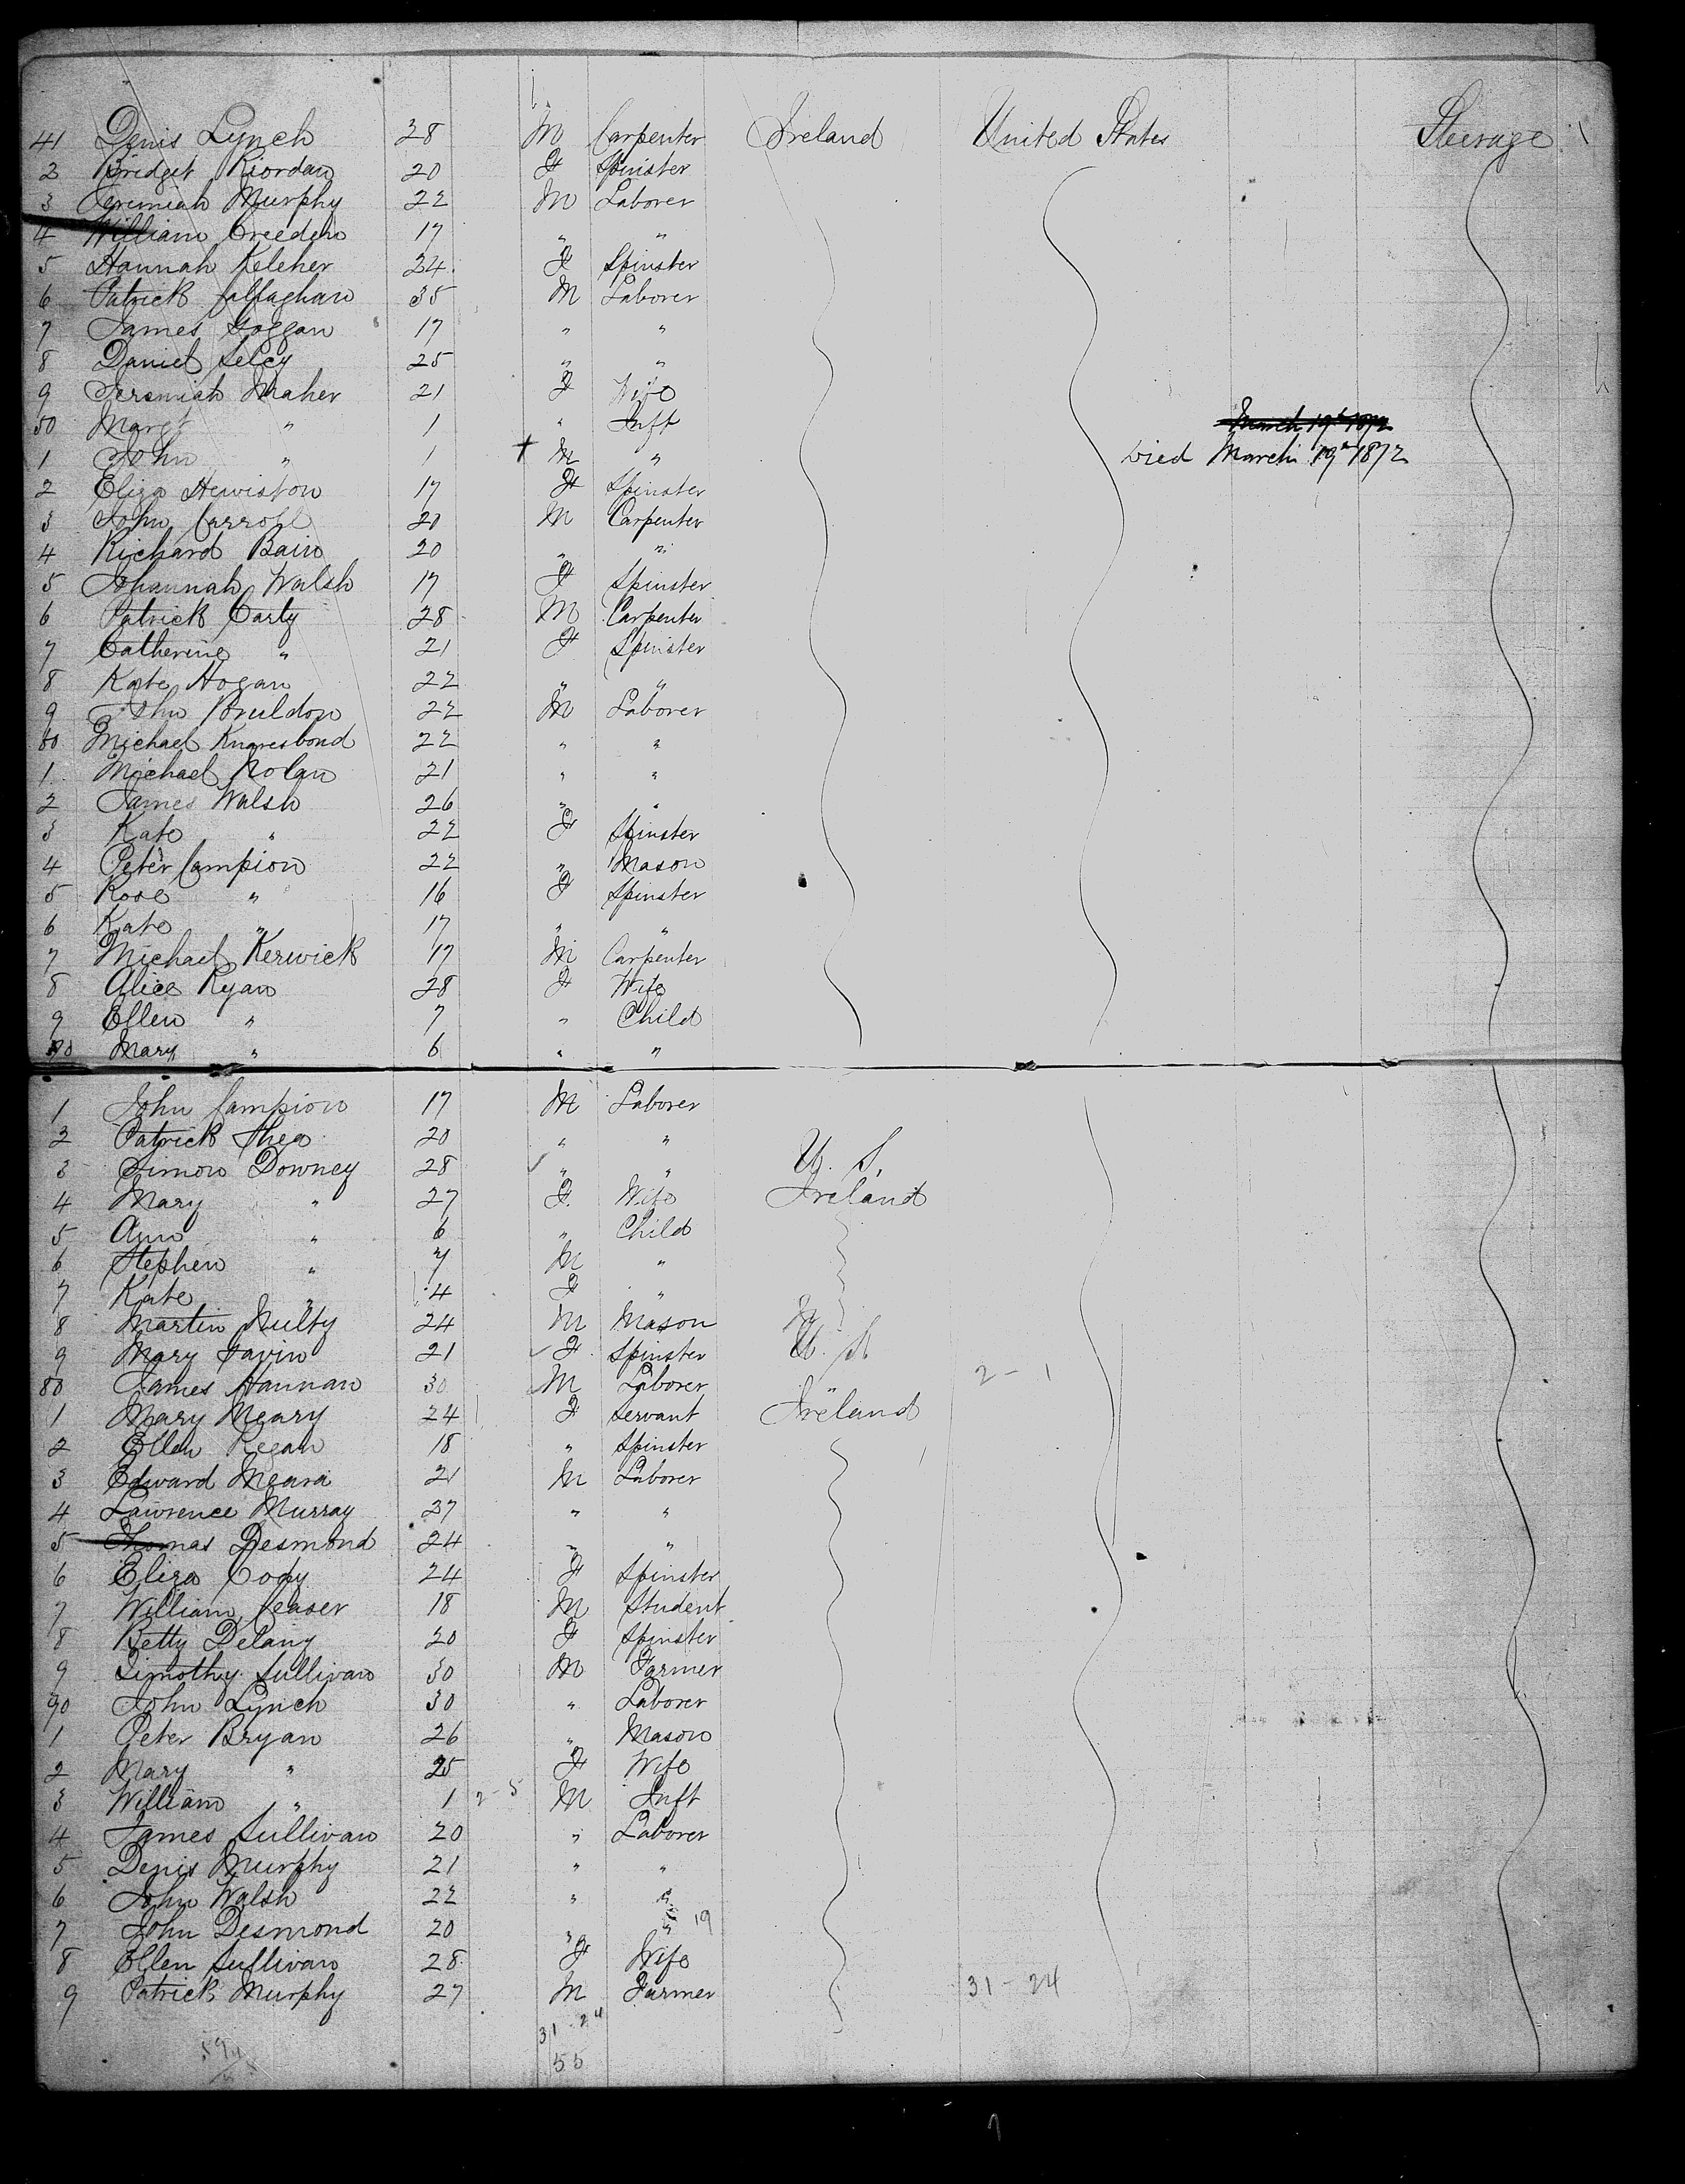 41 Denis Lynch 28 M Carpenter Ireland United States Steerage
2 Bridget Riordan 20 F Spinster
3 Jeremiah Murphy 22 M Laborer
4 William Creeden 17 " "
5 Hannah Keleher 24 F Spinster
6 Patrick Callaghan 35 M Laborer
7 James Goggan 17 " "
8 Daniel Lelcy 25 " "
9 Jeremiah Maher 21 F Wife
50 Margt " 1 " Inft March 19th 1872
1 John " 1 + M " Died March 19th 1872
2 Eliza Hewiston 17 F Spinster
3 John Carroll 20 M Carpenter
4 Richard Bain 20 " "
5 Johannah Walsh 17 F Spinster
6 Patrick Carty 28 M Carpenter
7 Catherine " 21 F Spinster
8 Kate Hogan 22 " "
9 John 22 M Laborer
60 Michael Knaresbond 22 " "
1 Michael Nolan 21 " "
2 James Walsh 26 " "
3 Kate " 22 F Spinster
4 Peter Campion 22 " Mason
5 Rose " 16 F Spinster
6 Kate " 17 " "
7 Michael Kerwick 17 M Carpenter
8 Alice Ryan 28 F Wife
9 Ellen " 7 " Child
70 Mary " 6 " "
1 John Campion 17 M Laborer
2 Patrick Shea 20 " "
3 Simon Downey 28 " " U. S.
4 Mary " 27 F. Wife Ireland
5 Ann " 6 " Child
6 Stephen " 7 M "
7 Kate " 4 F "
8 Martin Nulty 24 M Mason
9 Mary Gavin 21 F Spinster U. S.
80 James Hannan 30 M Laborer " 2 - 1
1 Mary Meary 24 F Servant Ireland
2 Ellen Regan 18 " Spinster
3 Edward Meara 21 M Laborer
4 Lawrence Murray 37 " "
5 Thomas Desmond 24 " "
6 Eliza Cody 24 F Spinster
7 William Ceaser 18 M Student
8 Betty Delany 20 F Spinster
9 Timothy Sullivan 30 M Farmer
90 John Lynch 30 " Laborer
1 Peter Bryan 26 " Mason
2 Mary " 25 F Wife
3 William " 1 2-5 M Inft
4 James Sullivan 20 " Laborer
5 Denis Murphy 21 " "
6 John Walsh 22 " "
7 John Desmond 20 " " 19
8 Ellen Sullivan 28 F Wife
9 Patrick Murphy 27 M Farmer 31 - 24
31 - 24
55